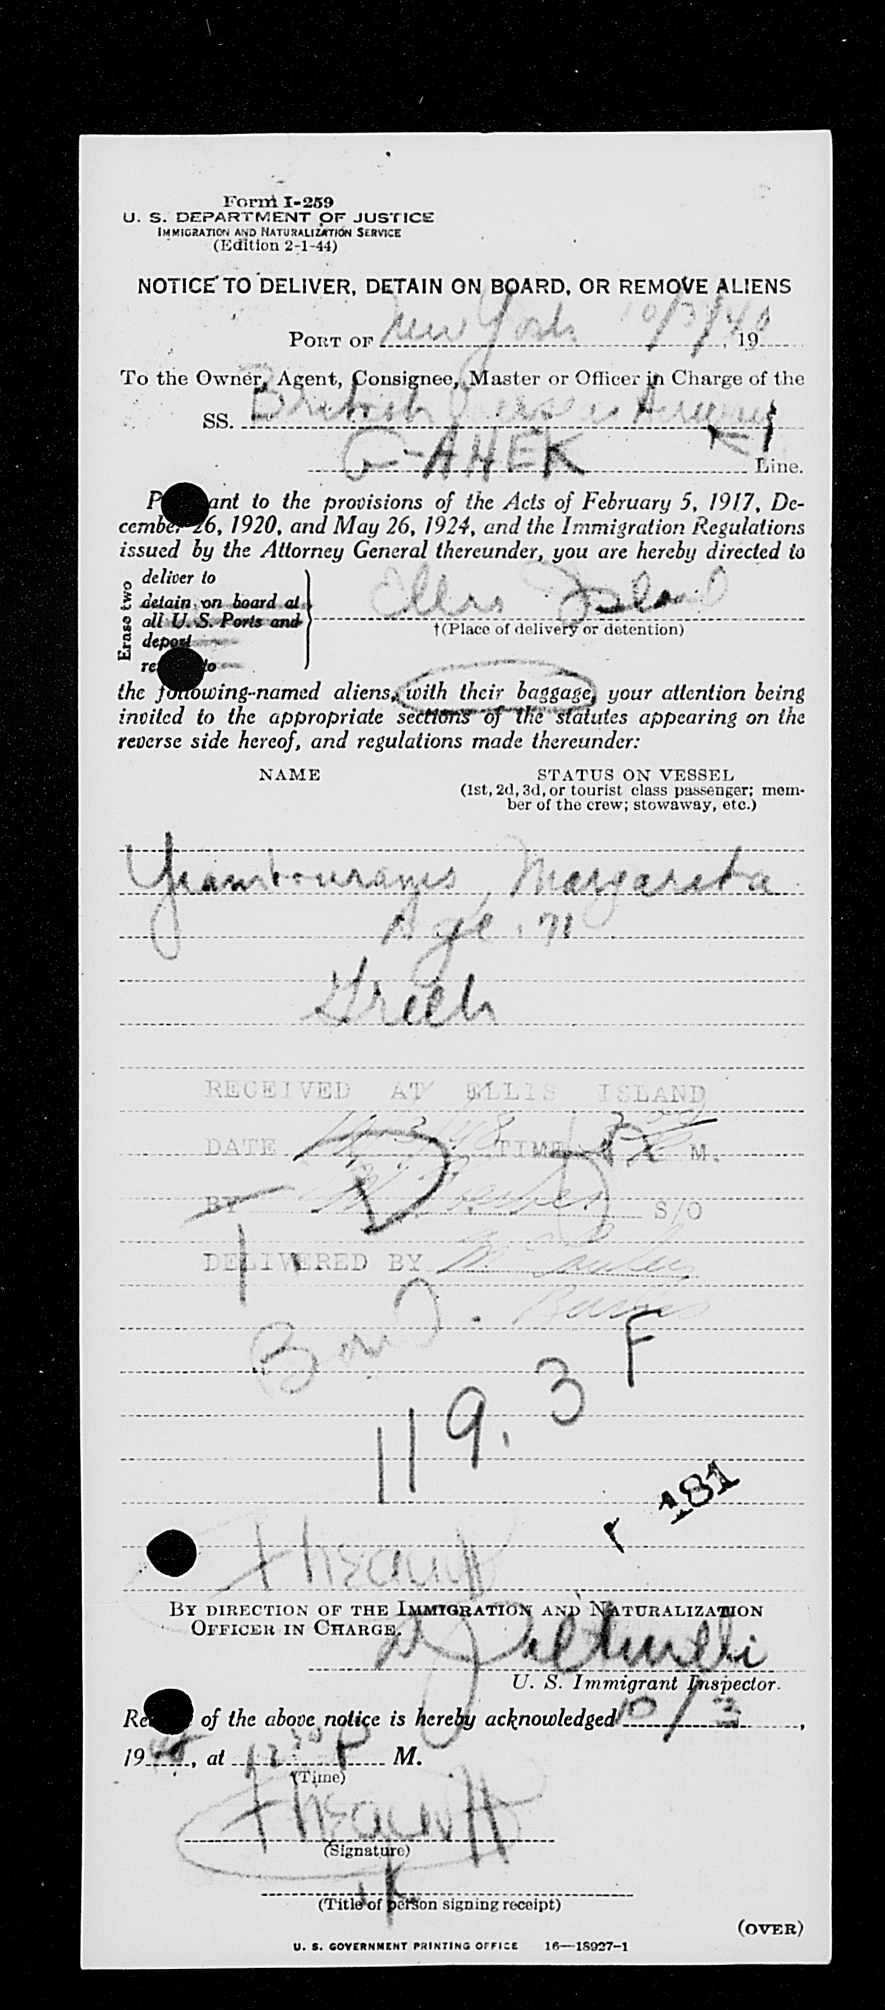 Form I-259
U. S. DEPARTMENT OF JUSTICE
IMMIGRATION AND NATURALIZATION SERVICE
(Edition 2-1-44)
NOTICE TO DELIVER, DETAIN ON BOARD, OR REMOVE ALIENS
PORT OF New York 10/3/48, 19
To the Owner, Agent, Consignee, Master or Officer in Charge of the
SS. British Overseas Airways
G-AHEK Line.
ant to the provisions of the Acts of February 5, 1917, De-
cember 26, 1920, and May 26, 1924, and the Immigration Regulations
issued by the Attorney General thereunder, you are hereby directed to
Erase two
deliver to
detain on board at
all U. S. Ports and
deport
to
Ellis Island
†(Place of delivery or detention)
the following-named aliens, with their baggage, your attention being
invited to the appropriate sections of the statutes appearing on the
reverse side hereof, and regulations made thereunder:
NAME STATUS ON VESSEL
(1st, 2d, 3d, or tourist class passenger; mem-
ber of the crew; stowaway, etc.)
Margarita
Age 71
Greek
RECEIVED AT ELLIS ISLAND
DATE 10/3/48 TIME M.
BY S/O
DELIVERED BY
T. D.
Bond.
F
119.3
181
BY DIRECTION OF THE IMMIGRATION AND NATURALIZATION
OFFICER IN CHARGE.
U. S. Immigrant Inspector.
of the above notice is hereby acknowledged 10/3,
1948, at 12 30 P M.
(Time)
(Signature)
(Title of person signing receipt)
(OVER)
U. S. GOVERNMENT PRINTING OFFICE 16—18927-1